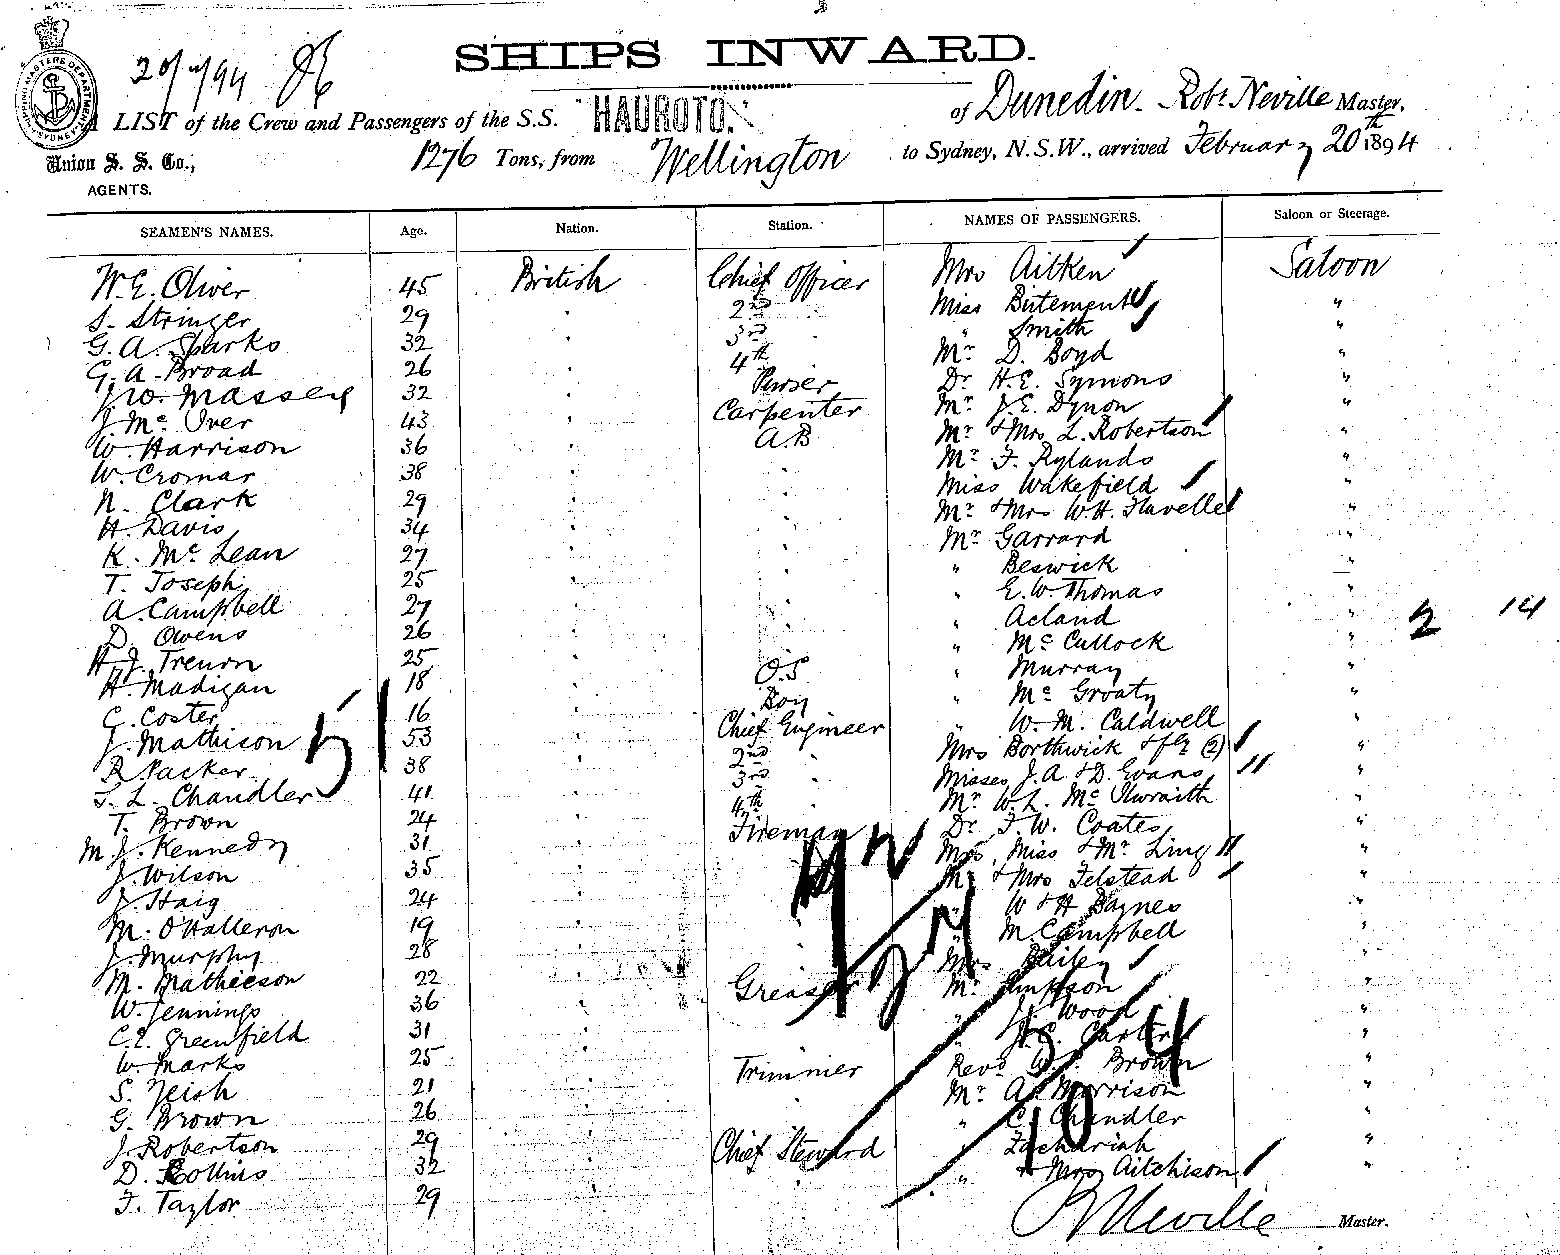 SHIPS INWARD.
20/2/94
A LIST of the Crew and Passengers of the S.S. HAUROTO. of Dunedin. Robt Neville Master,
Union S. S. Co., AGENTS.
1276 Tons, from Wellington to Sydney, N.S.W., arrived February 20th 1894
SEAMEN'S NAMES. Age. Nation. Station. NAMES OF PASSENGERS. Saloon or Steerage.
W.E. Oliver 45 British Chief Officer Mrs Aitken Saloon
S. Stringer 29 " 2nd " Miss Butement "
G. A. Sparks 32 " 3rd " " Smith "
G. A. Broad 26 " 4th Mr D. Boyd "
Jno. Massey 32 " Purser Dr H.E. Symons "
J. Mc Iver 43 " Carpenter Mr J.E. Dynon "
W. Harrison 36 " A.B Mr & Mrs L. Robertson "
W. Cromar 38 " " Mr F. Rylands "
N. Clark 29 " " Miss Wakefield "
H. Davis 34 " " Mr & Mrs W.H. Flavelle "
K. Mc Lean 27 " " Mr Garrard "
T. Joseph 25 " " " Beswick "
A. Campbell 27 " " " E.W. Thomas "
D. Owens 26 " " " Acland "
H. J. Trenon 25 " " " Mc Cullock "
H. Madigan 18 " O.S " Murray "
C. Coster 16 " Boy " Mc Groaty "
J. Mathison 53 " Chief Engineer " W. M. Caldwell "
R. Packer 38 " 2nd " Mrs Borthwick & (2) "
S. L. Chandler 41 " 3rd " Misses J.A & D. Evans "
T. Brown 24 " 4th Mr W.L. Mc Ilwraith "
M. J. Kennedy 31 " Fireman Dr F.W. Coates "
J. Wilson 35 " " Mrs, Miss & Mr Ling "
J. Haig 24 " " Mr & Mrs Felstead "
M. O'Halleron 19 " " " W & H Baynes "
J. Murphy 28 " " " M Campbell "
M. Mathieson 22 " Greaser Mrs Bailey "
W. Jennings 36 " " Mr Simpson "
C.E. Greenfield 31 " " " J. Wood "
W. Marks 25 " Trimmer " Carter "
S. Neish 21 " " Revd Brown "
G. Brown 26 " " Mr A. Morrison "
J. Robertson 29 " " " C. Chandler "
D. Collins 32 " Chief Steward " Zachariah "
F. Taylor 29 " " & Mrs Aitchison "
2 14
51
4
10
R Neville Master.